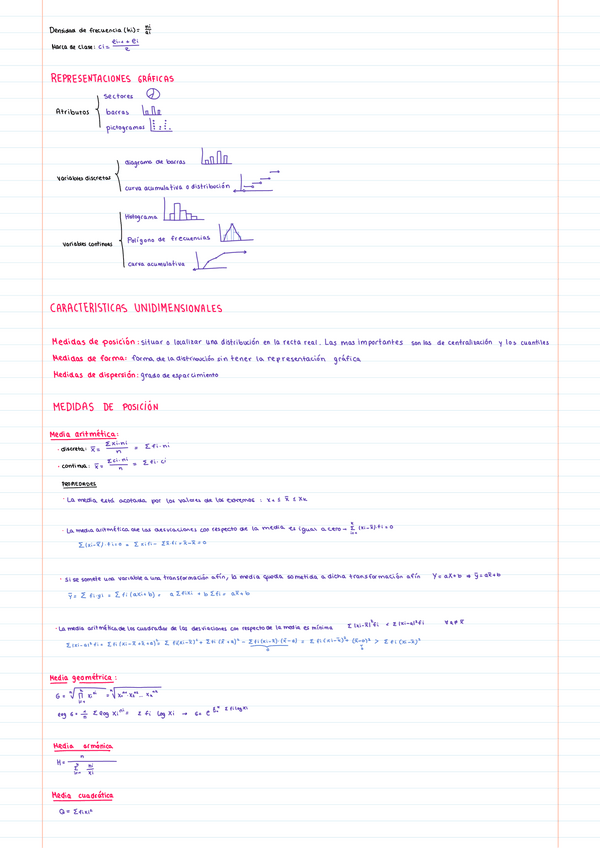 Densidad de frecuencia (hi) = ni/ai
Marca de clase: ci = (ei-1 + ei)/2
REPRESENTACIONES GRÁFICAS
Atributos
sectores
barras
pictogramas
Variables discretas
diagrama de barras
curva acumulativa o distribución
Variables continuas
Histograma
Polígono de frecuencias
curva acumulativa
CARACTERISTICAS UNIDIMENSIONALES
Medidas de posición: situar o localizar una distribución en la recta real. Las mas importantes son las de centralización y los cuantiles
Medidas de forma: forma de la distribución sin tener la representación gráfica
Medidas de dispersión: grado de esparcimiento
MEDIDAS DE POSICIÓN
Media aritmética:
· discreta: x̄ = Σxi·ni/n = Σfi·ni
· continua: x̄ = Σci·ni/n = Σfi·ci
PROPIEDADES
· La media está acotada por los valores de los extremos: x1 ≤ x̄ ≤ xk
· La media aritmética de las desviaciones con respecto de la media es igual a cero → Σ(xi-x̄)·fi = 0
Σ(xi-x̄)·fi=0 = Σxifi - Σx̄·fi = x̄-x̄ = 0
· Si se somete una variable a una transformación afín, la media queda sometida a dicha transformación afín Y=ax+b ⇒ ȳ=ax̄+b
ȳ = Σfi·yi = Σfi(axi+b) = aΣfixi + bΣfi = ax̄+b
· La media aritmética de los cuadrados de las desviaciones con respecto de la media es mínima Σ(xi-x̄)²fi < Σ(xi-a)²fi ∀a≠x̄
Media geométrica:
Media armónica
Media cuadrática
Q = Σfixi²